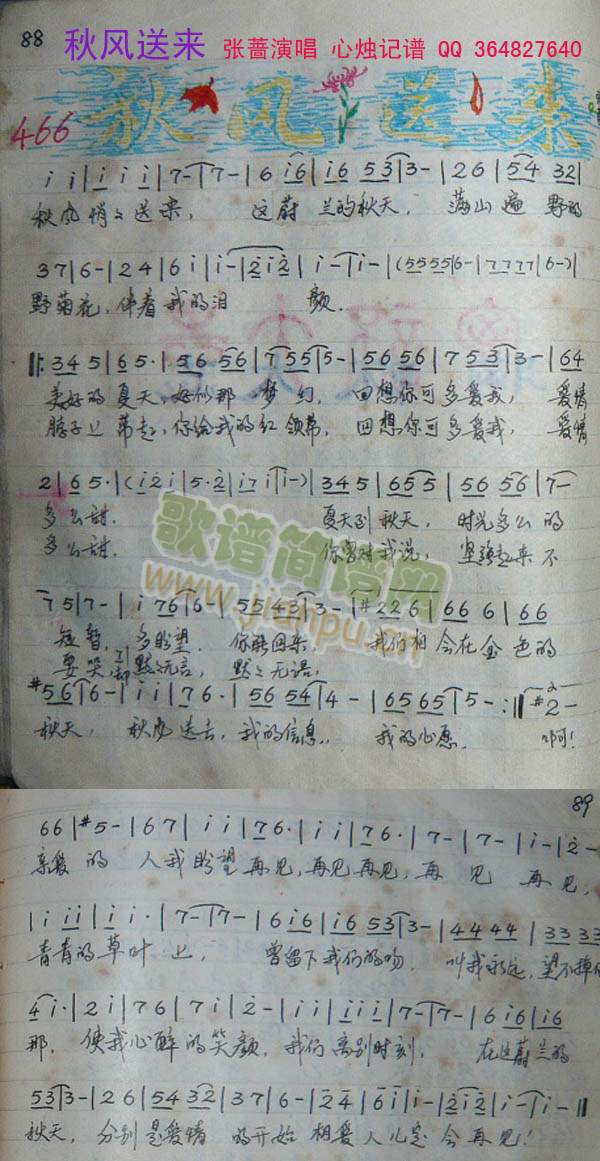 88 秋风送来 张蔷演唱 心烛记谱 QQ 364827640
466 秋风送来
i i | i i i | 7 - | 7 - | 6 i6 | i6 53 | 3 - | 2 6 | 54 32 |
秋风悄々送来, 这蔚兰的秋天, 满山遍野的
3 7 | 6 - | 2 4 | 6 i | i - | 2i2 | i - | i - | (5555 | 6 - | 7777 | 6 - )|
野菊花,伴着我的泪 颜.
||: 34 5 | 6 5 · | 56 56 | 7 55 | 5 - | 56 56 | 7 53 | 3 - | 64
美好的夏天,好似那梦幻, 回想你可多爱我, 爱情
脖子上带起,你给我的红领带, 回想你可多爱我, 爱情
2 | 6 5 · | (i 2 i | 5 · 2 | i7 i | i - ) | 34 5 | 65 5 | 56 56 | 7 -
多么甜. 夏天到秋天, 时光多么的
多么甜. 你曾对我说, 坚强起来不
歌谱简谱网
www.jianpu.cn
7 5 | 7 - | i 76 | 6 - | 55 43 | 3 - | #22 6 | 66 6 | 66
短暂, 多盼望, 你能回来, 我们相会在金色的
要哭,却默々无言, 默々无语,
#56 | 6 - | i i | 7 6 · | 56 54 | 4 - | 65 65 | 5 - :|| #2 -
秋天, 秋风送去,我的信息, 我的心愿. 啊!
89
66 | #5 - | 6 7 | i i | 7 6 · | i i | 7 6 · | 7 - | 7 - | i - | 2 -
亲爱的人我盼望再见,再见再见,再见再见,
| i ii | i i · | 7 - | 7 - | 6 i6 | i6 53 | 3 - | 44 44 | 33 33
青青的草叶上, 曾留下我们的吻, 叫我永远,忘不掉
4 i · | 2 i | 7 6 | 7 i | 2 - | i i | i i i | 7 - | 7 - | 6 i6 | i6
那,使我心醉的笑颜,我们离别时刻, 在这蔚兰的
53 | 3 - | 2 6 | 54 32 | 3 7 | 6 - | 2 4 | 6 i | i - | 2i2 | i - | i - ||
秋天,分别是爱情的开始相爱人儿定会再见!